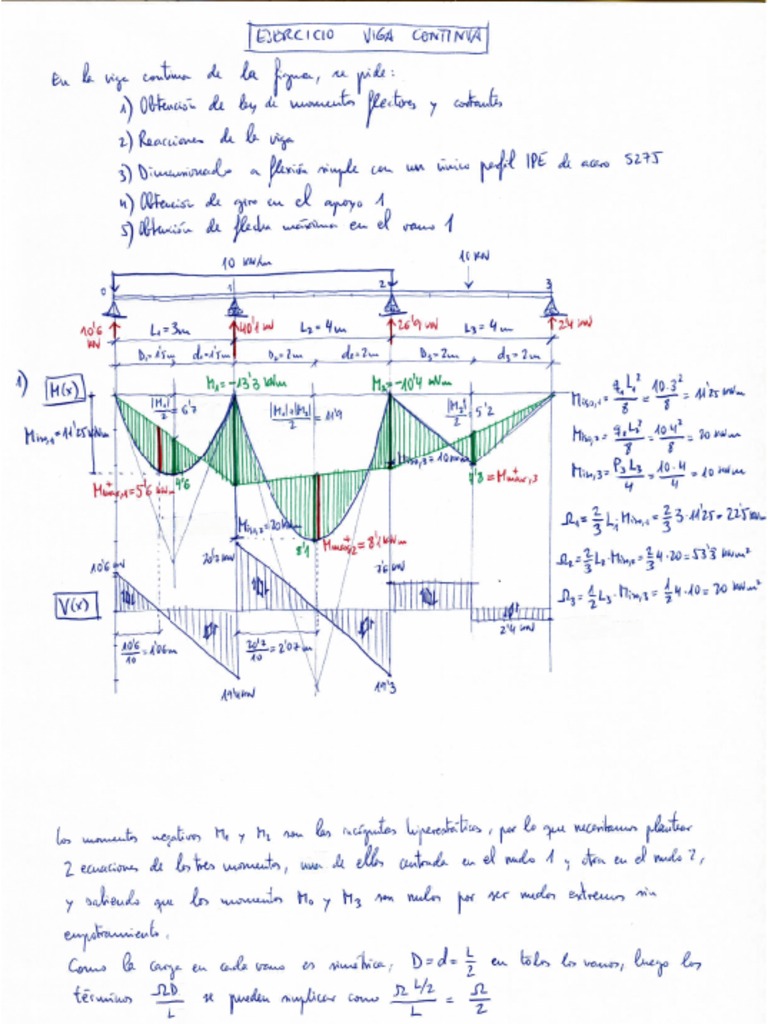 EJERCICIO VIGA CONTINUA
En la viga continua de la figura, se pide:
1) Obtención de ley de momentos flectores y cortantes
2) Reacciones de la viga
3) Dimensionado a flexión simple con un único perfil IPE de acero S275
4) Obtención de giro en el apoyo 1
5) Obtención de flecha máxima en el vano 1
10 kN/m
10 kN
0 1 2 3
10'6 kN
40'1 kN
26'9 kN
2'4 kN
L₁ = 3m L₂ = 4m L₃ = 4m
D₁=1'5m d₁=1'5m D₂=2m d₂=2m D₃=2m d₃=2m
1) M(x)
M₁ = -13'3 kNm
M₂ = -10'4 kNm
|M₁|/2 = 6'7
|M₁|+|M₂|/2 = 11'9
|M₂|/2 = 5'2
Miso,1 = 11'25 kNm
Miso,3 = 10 kNm
M⁺max,1 = 5'6 kNm
4'6
Miso,2 = 20 kNm
8'1
M⁺max,2 = 8'1 kNm
4'8 = M⁺max,3
Miso,1 = q₁L₁²/8 = 10·3²/8 = 11'25 kNm
Miso,2 = q₂L₂²/8 = 10·4²/8 = 20 kNm
Miso,3 = P₃L₃/4 = 10·4/4 = 10 kNm
Ω₁ = 2/3 L₁ Miso,1 = 2/3 3·11'25 = 22'5 kNm²
Ω₂ = 2/3 L₂·Miso,2 = 2/3 4·20 = 53'3 kNm²
Ω₃ = 1/2 L₃·Miso,3 = 1/2 4·10 = 20 kNm²
V(x)
10'6 kN
20'7 kN
7'6 kN
2'4 kN
10'6/10 = 1'06 m
20'7/10 = 2'07 m
19'4 kN
19'3
Los momentos negativos M₁ y M₂ son las incógnitas hiperestáticas, por lo que necesitamos plantear
2 ecuaciones de los tres momentos, una de ellas centrada en el nudo 1 y otra en el nudo 2,
y sabiendo que los momentos M₀ y M₃ son nulos por ser nudos extremos sin
empotramiento.
Como la carga en cada vano es simétrica, D = d = L/2 en todos los vanos, luego los
términos ΩD/L se pueden simplificar como Ω L/2/L = Ω/2